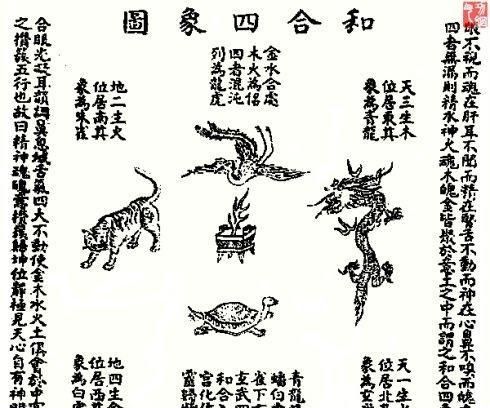 和合四象圖
眼不視而魂在肝耳不聞而精在腎舌不動而神在心鼻不嗅而魄
四者無漏則精水神火魂木魄金皆聚於意土之中而謂之和合四
天三生木
位居東其
象為青龍
金水合處
木火為侶
四者混沌
列為龍虎
地二生火
位居南其
象為朱雀
天一生
位居北
象為玄
青龍
雀下
玄武四
和合
宮化作
地四生金
位居西其
象為白
合眼光凝耳韻調鼻息緘舌氣四大不動使金木水火土俱會於中
之攢簇五行也故曰精神魂魄意攢簇歸坤位靜極見天心自有神明